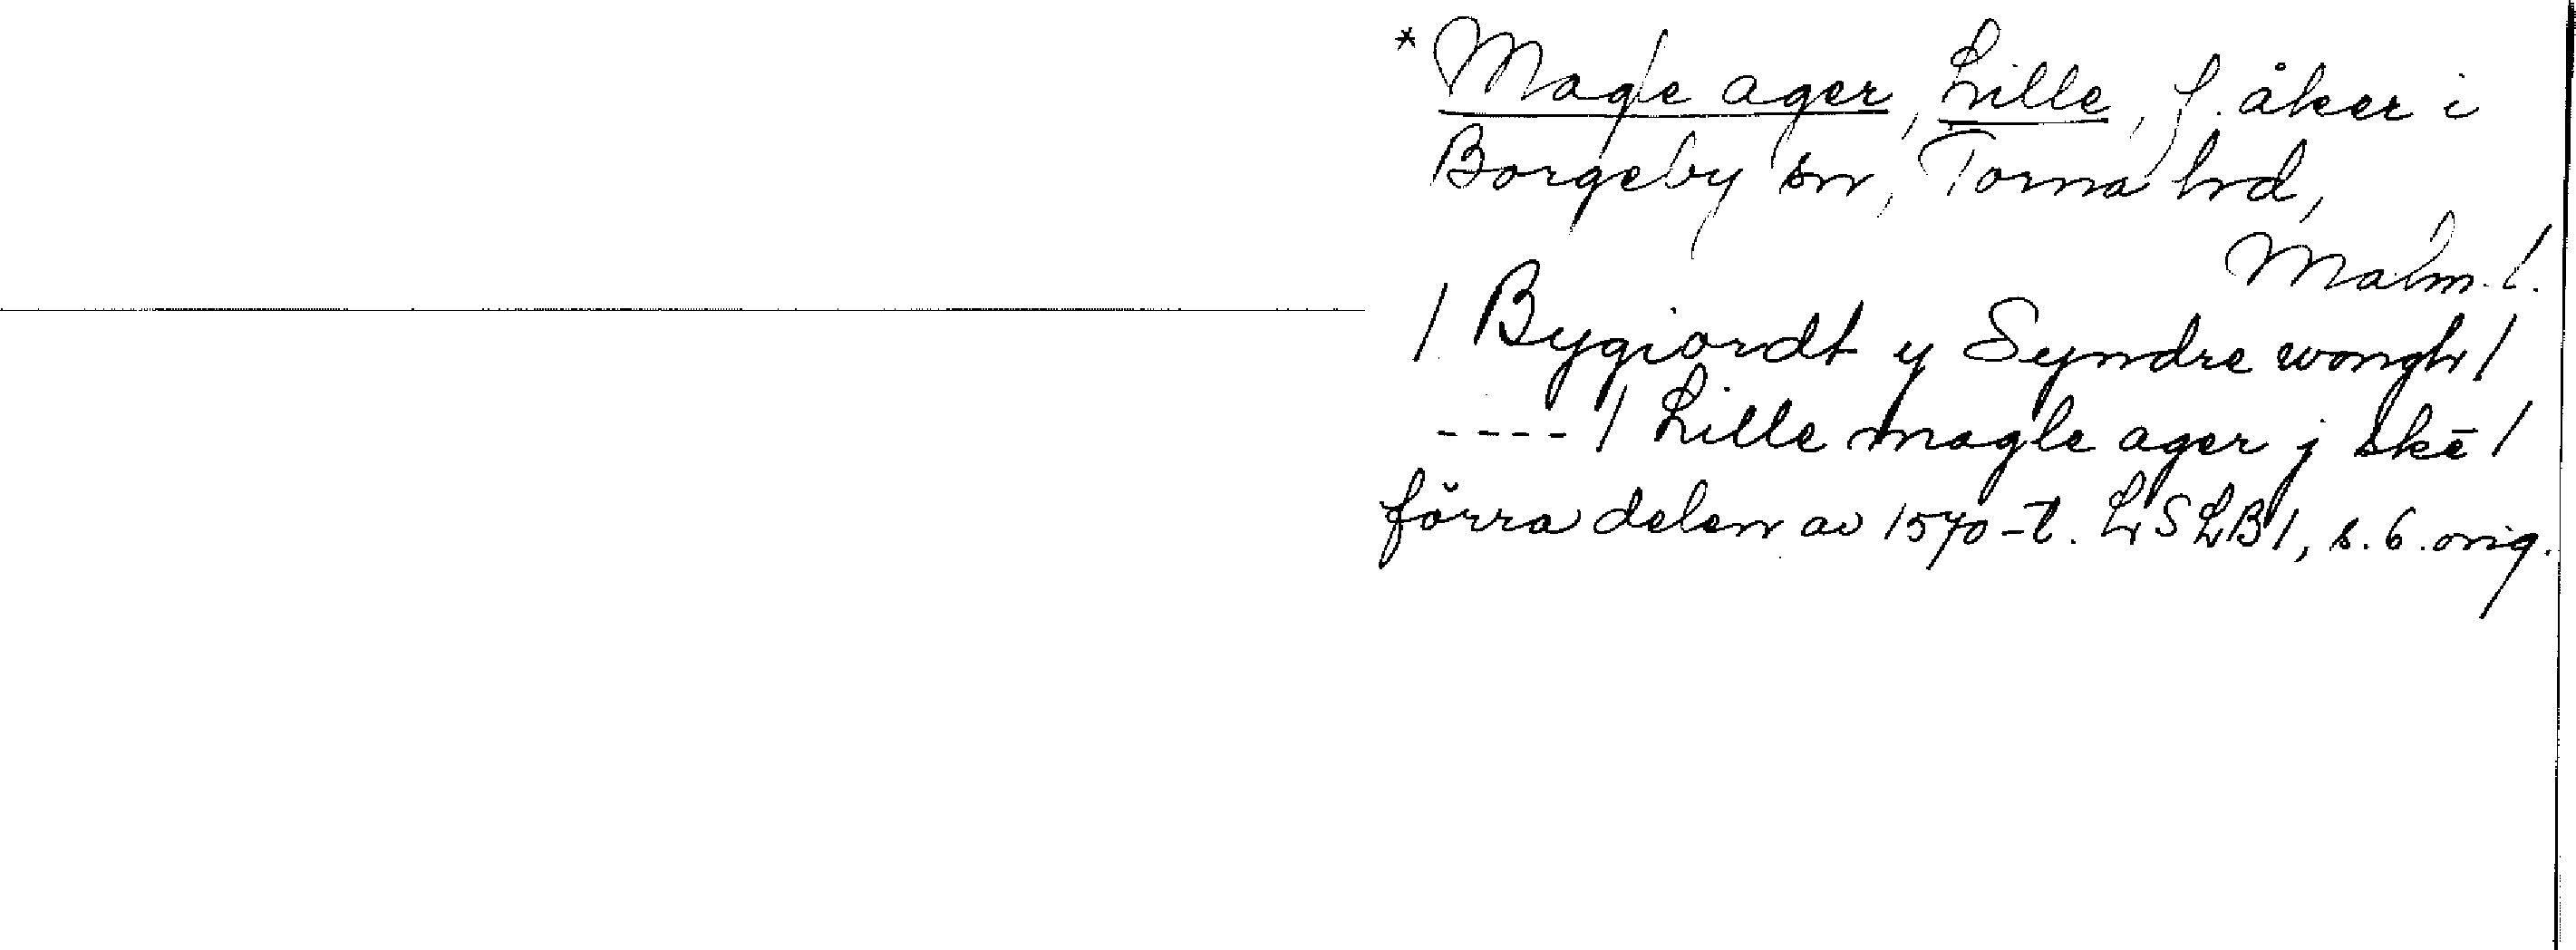 * Magle ager, Lille, f. åker i
Borgeby sn, Torna hd,
Malm. l.
/ Bygiordt y Syndre wongh /
---- / Lille magle ager j skē /
förra delen av 1570-t. LSLB 1, s. 6. orig.